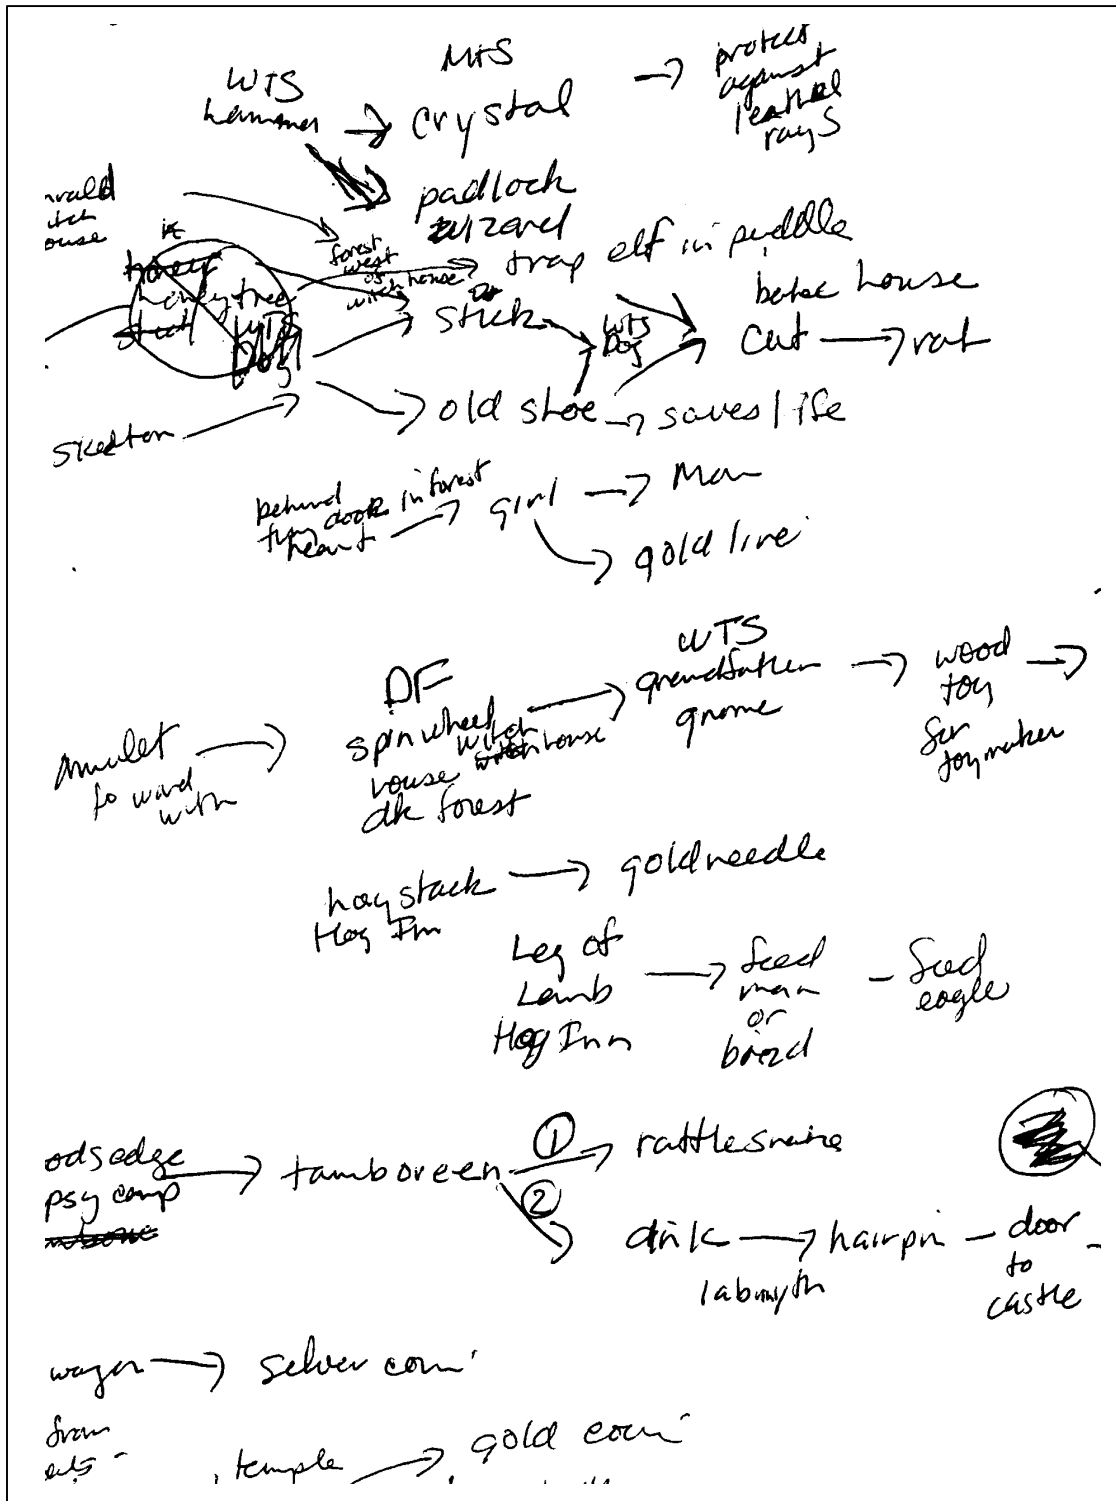 WTS
hammer → crystal
MTS
→ protect
against
leathal
rays
padlock
wizard
house
forest
west
of
witch house
trap elf in puddle
honey
honey tree
WTS
stick
WTS
Dog
bakee house
cat → rat
old shoe → saves life
skeleton
behind
tiny door in forest
heart → girl → Man
→ gold line
Amulet
to ward
with
DF
spin wheel
witch
house
dk forest
house
WTS
grandfather
gnome
wood
toy
for
toymaker
haystack → gold needle
Hog Inn
Leg of
Lamb
Hog Inn
feed
man
or
- feed
eagle
odsedge
psy camp
→ tamboreen
① rattlesnake
② drink → hairpin - door
to
castle
wagon → selver coin
from
temple → gold coin